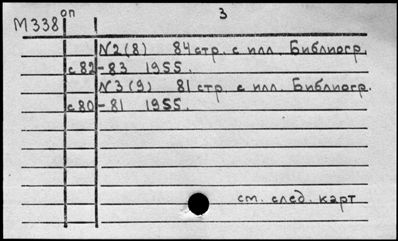 3
М338 оп
N2(8) 84 стр. с илл. Библиогр.
с 82-83 1955.
N3(9) 81 стр. с илл. Библиогр.
с 80-81 1955.
см. след. карт